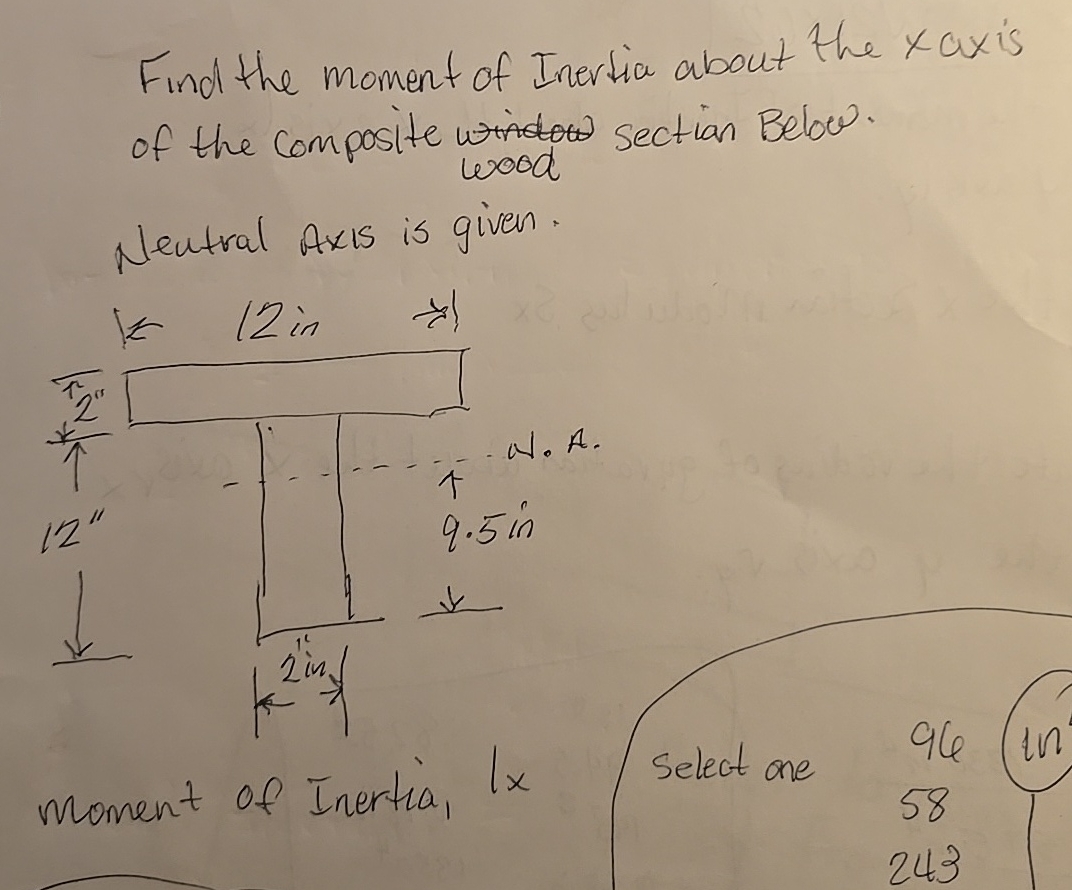 Find the moment of Inertia about the x axis
of the composite window section Below.
wood
Neutral Axis is given.
12 in
2"
N. A.
12"
9.5 in
2"in
Select one 96 in
58
moment of Inertia, Ix
243